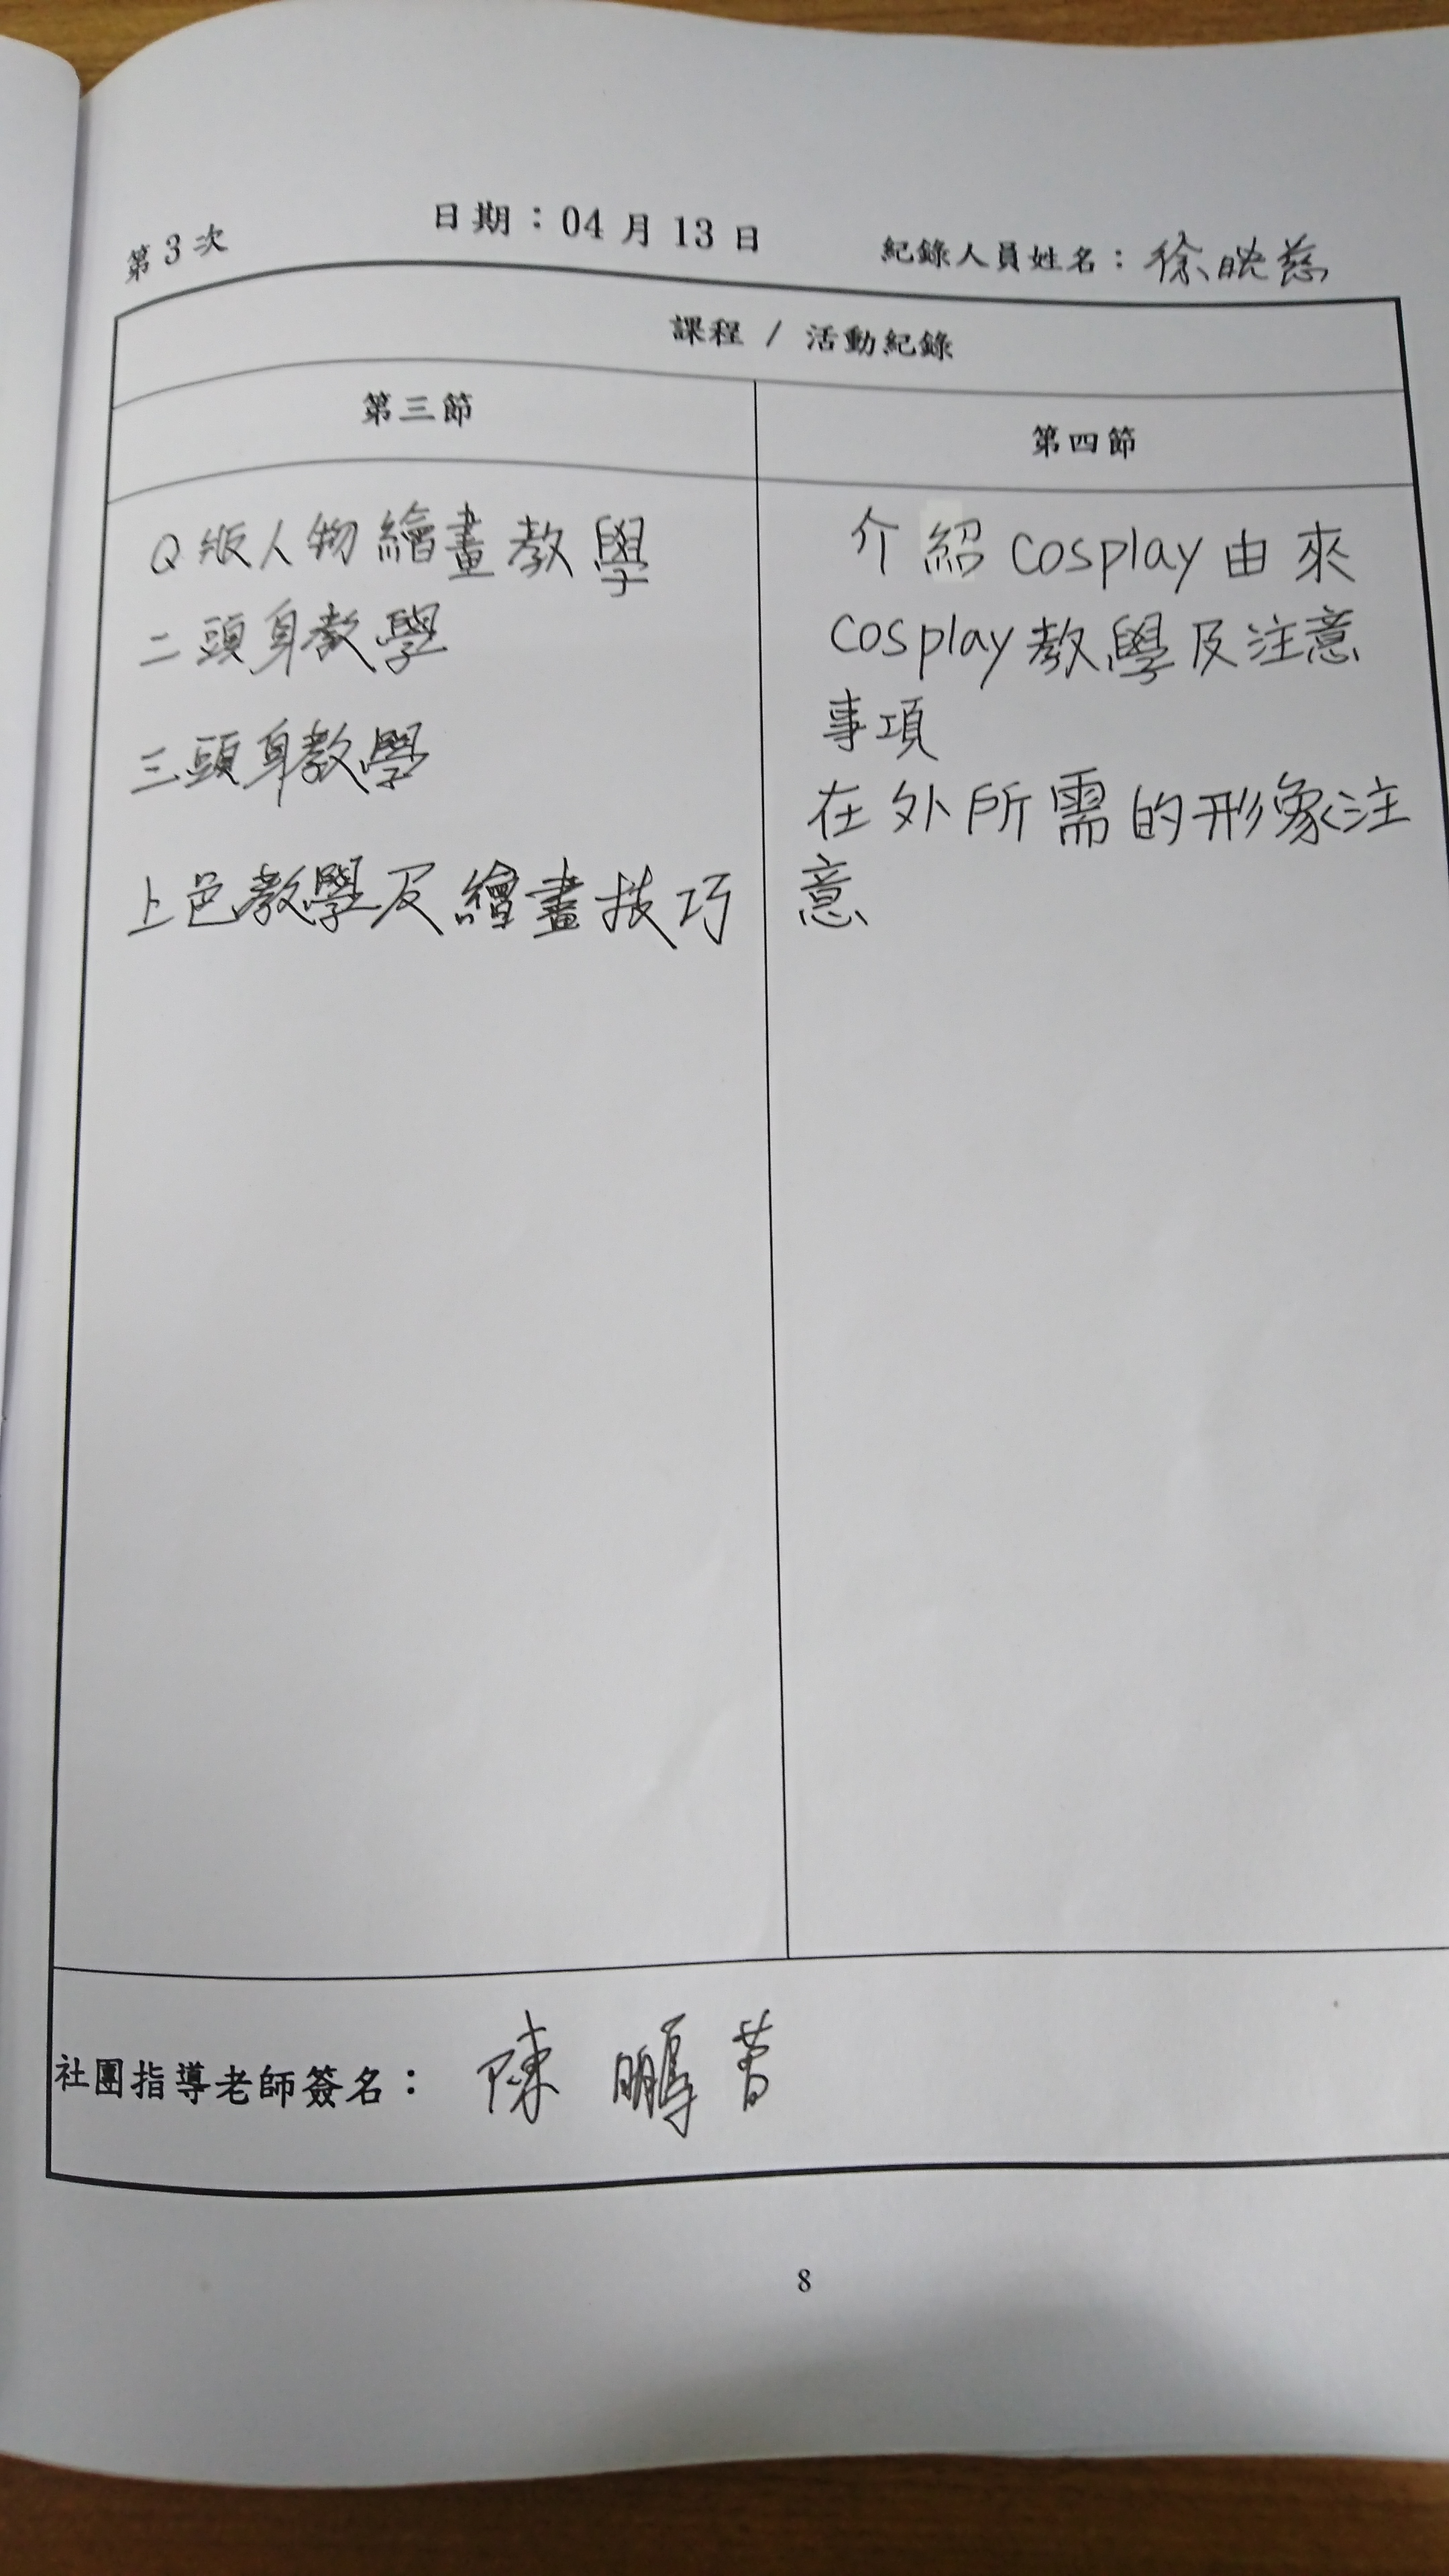 第3次
日期：04月13日
紀錄人員姓名：徐映慈
課程 / 活動紀錄
第三節
Q版人物繪畫教學
二頭身教學
三頭身教學
上色教學及繪畫技巧
第四節
介紹 Cosplay 由來
Cosplay 教學及注意
事項
在外所需的形象注
意
社團指導老師簽名：陳鵬
8